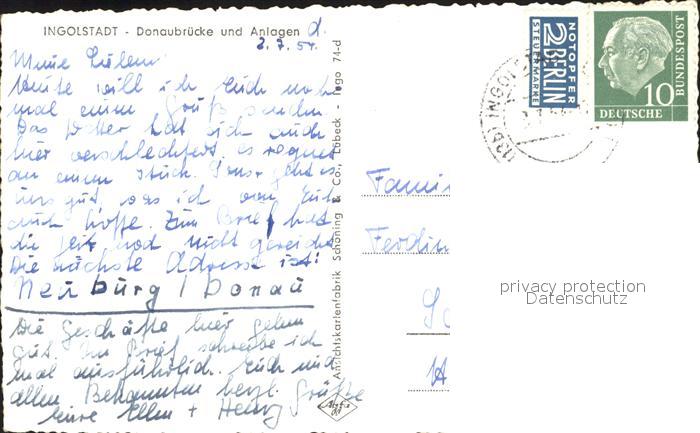 INGOLSTADT - Donaubrücke und Anlagen d.
2.7.54.
Meine Lieben
Heute will ich Euch noch
mal einen Gruß senden
Das Wetter hat sich auch
hier verschlechtert, es regnet
an einem Stück. Sonst geht es
uns gut, was ich von Euch
auch hoffe. Zum Brief hat
die Zeit noch nicht gereicht.
Die nächste Adresse ist:
Neuburg / Donau
Die Geschäfte hier gehen
gut. Im Brief schreibe ich
mal ausführlich. Euch und
allen Bekannten herzl. Grüße
Eure Ellen + Heinz
Ansichtskartenfabrik Schöning & Co., Lübeck - Ingo 74-d
NOTOPFER
2 BERLIN
STEUERMARKE
DEUTSCHE
BUNDESPOST
10
INGOL
Famil
Ferdin
privacy protection
Datenschutz